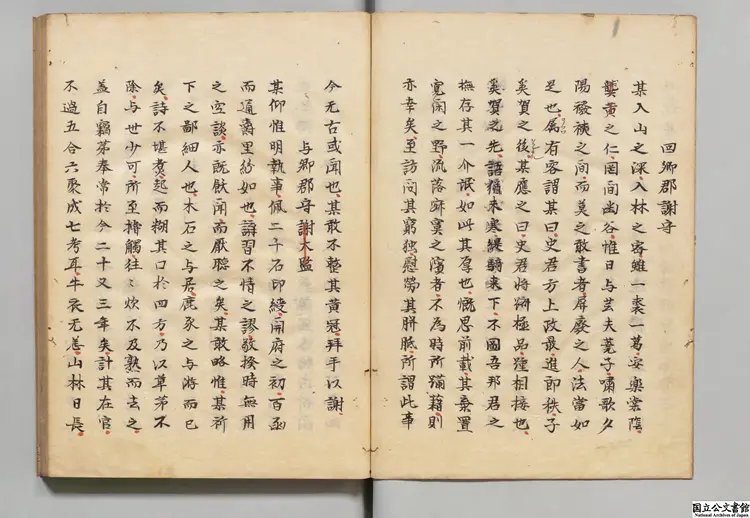 回鄉郡謝守
某入山之深入林之密雖一裘一葛安樂棠蔭
龔黄之仁罔間幽谷惟日与芸夫蕘子嘯歌夕
陽襏襫之間而莫之敢書者屏廢之人法當如
是也属有客謂某曰史君方上政最進即秩子
奚賀之後某應之曰史君將衹極品踵相接也
奚賀之先語猶未寒緹騎来下不圖吾邦君之
撫存其一介氓如此其孚也慨思前載其棄置
寬閑之野流落寂寞之濱者不為時所蹹藉則
亦幸矣至訪问其窮獨慰勞其胼胝所謂此事
今无古或闻也某敢不整其黄冠拜手以謝
与鄉郡守謝大監
某仰惟明執事佩二千石印綬開府之初百函
而通爵里紛如也講習不情之謬敬揆時無用
之空談亦既飫聞而厭聴之矣某敢略惟某祈
下之鄙細人也木石之与居鹿豕之与游而已
矣詩不堪煑起而糊其口於四方乃以草茅不
除与世少可所至摶觸往々炊不及熟而去之
盖自竊第奉常於今二十又三年矣計其在官
不過五合六聚成七考耳牛衣无恙山林日長
国立公文書館
National Archives of Japan